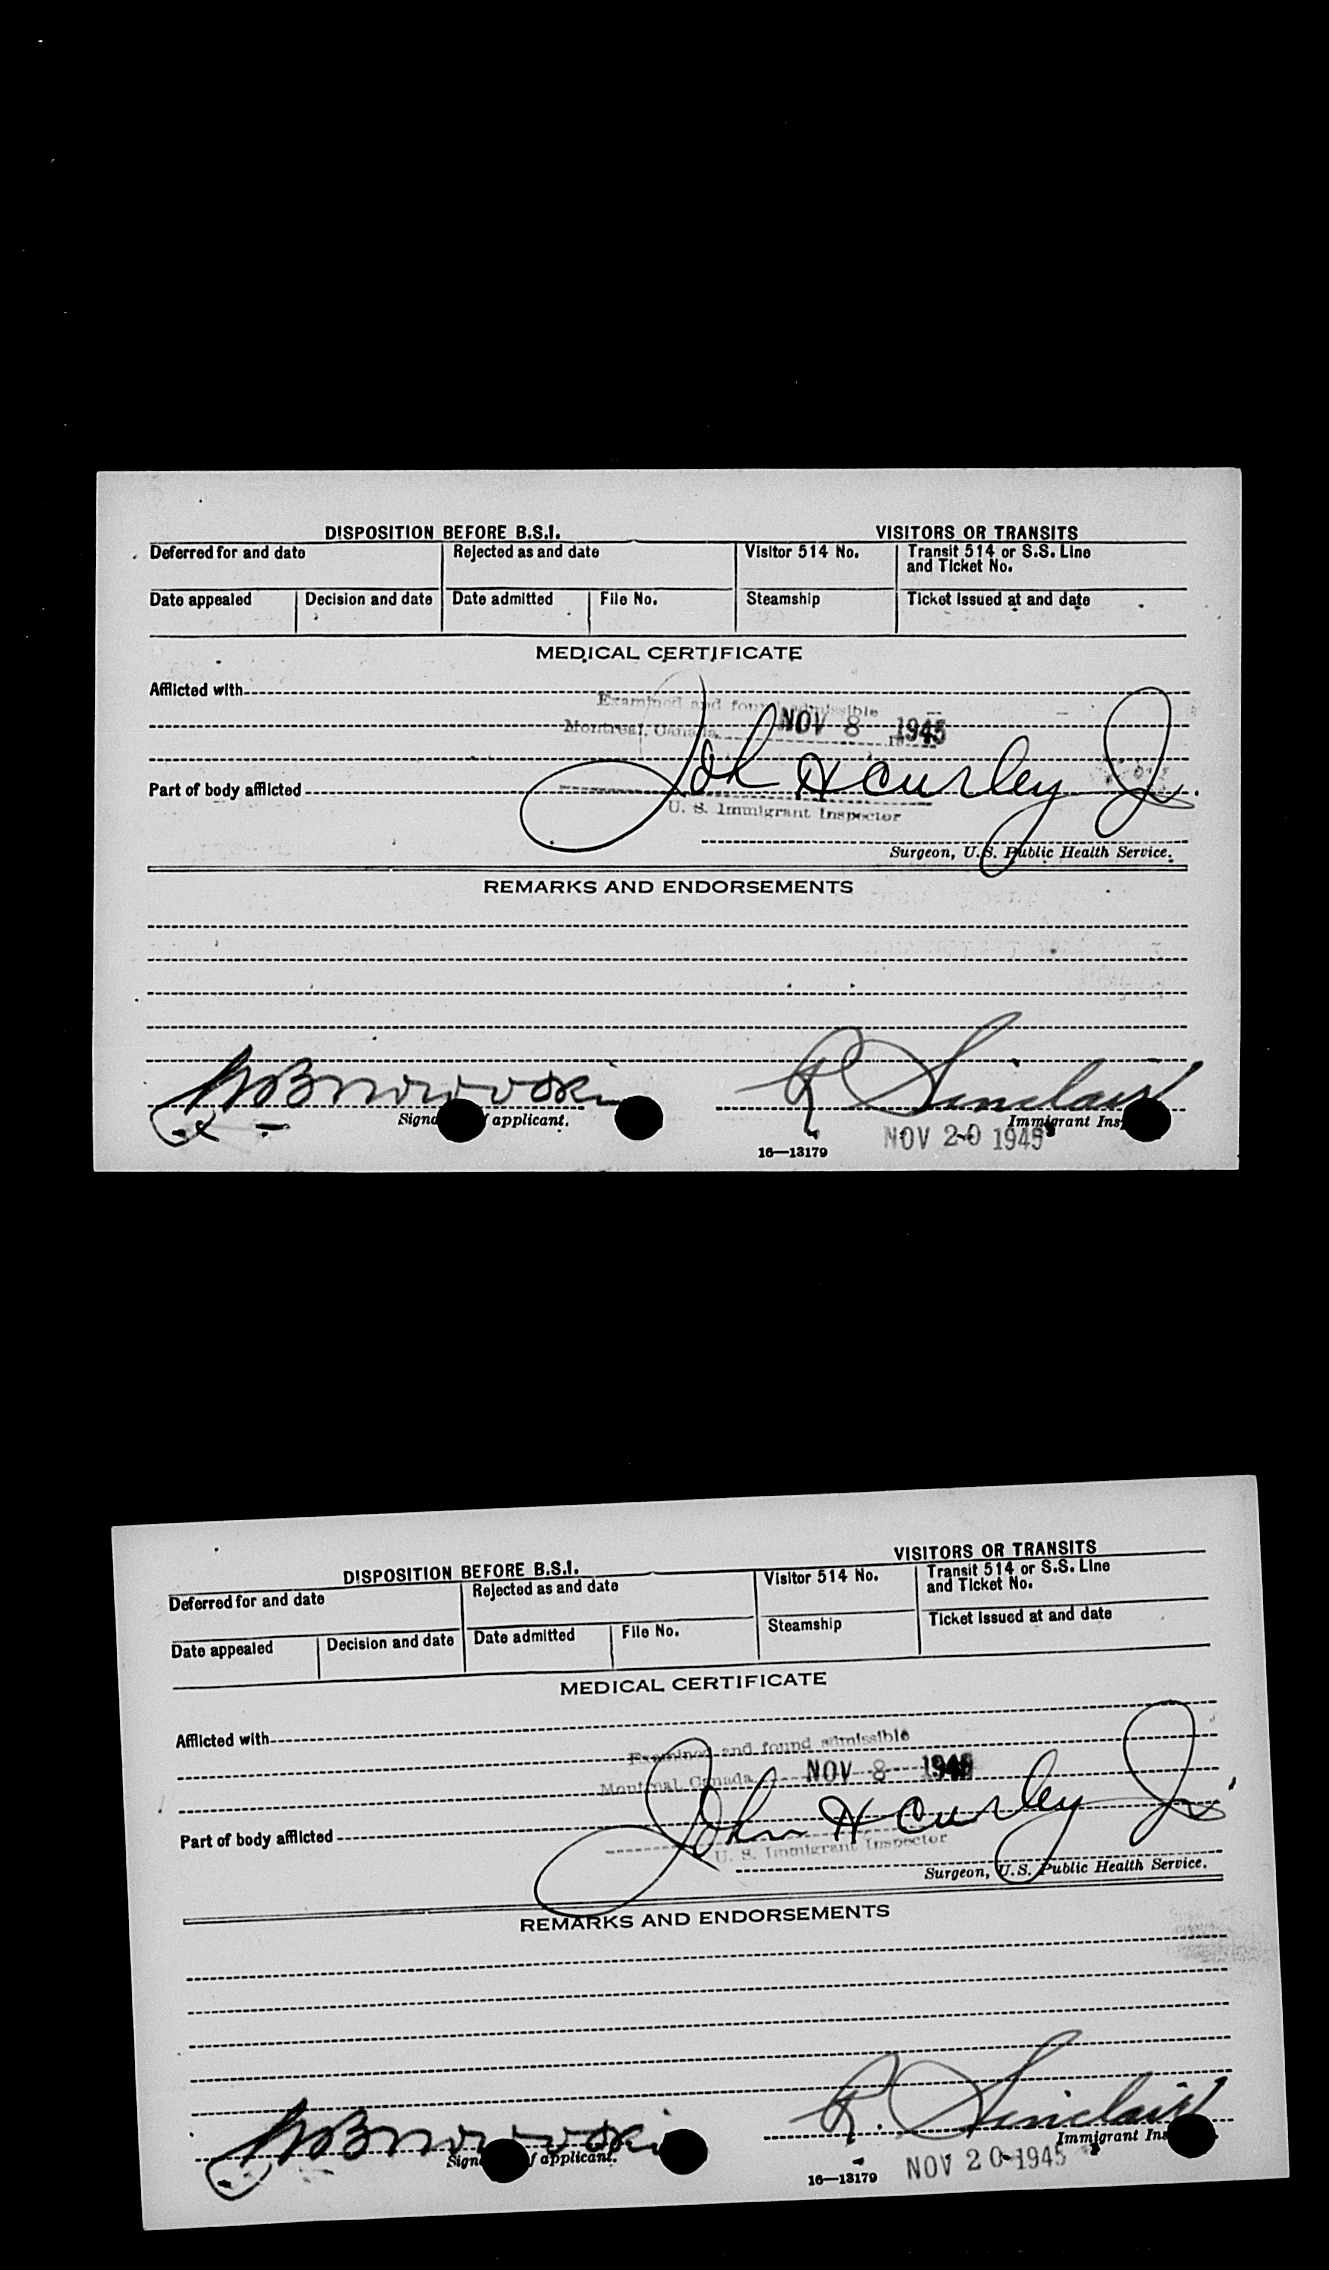 DISPOSITION BEFORE B.S.I. VISITORS OR TRANSITS
Deferred for and date Rejected as and date Visitor 514 No. Transit 514 or S.S. Line
and Ticket No.
Date appealed Decision and date Date admitted File No. Steamship Ticket issued at and date
MEDICAL CERTIFICATE
Afflicted with
Examined and found admissible
Montreal, Canada NOV 8 1945
John H Curley Jr.
Part of body afflicted
U. S. Immigrant Inspector
Surgeon, U.S. Public Health Service.
REMARKS AND ENDORSEMENTS
R Sinclair
applicant. Immigrant
16—13179 NOV 20 1945
DISPOSITION BEFORE B.S.I. VISITORS OR TRANSITS
Deferred for and date Rejected as and date Visitor 514 No. Transit 514 or S.S. Line
and Ticket No.
Date appealed Decision and date Date admitted File No. Steamship Ticket issued at and date
MEDICAL CERTIFICATE
Afflicted with
Examined and found admissible
Montreal, Canada NOV 8 1945
John H Curley Jr
Part of body afflicted
U. S. Immigrant Inspector
Surgeon, U.S. Public Health Service.
REMARKS AND ENDORSEMENTS
R. Sinclair
applicant. Immigrant
16—13179 NOV 20 1945